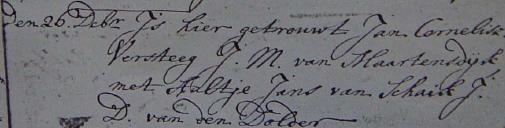 Den 26 Debr Is hier getrouwt Jan Cornelisz
Versteeg J. M. van Maartensdyk
met Aaltje Jans van Schaick J.
D. van den Dolder